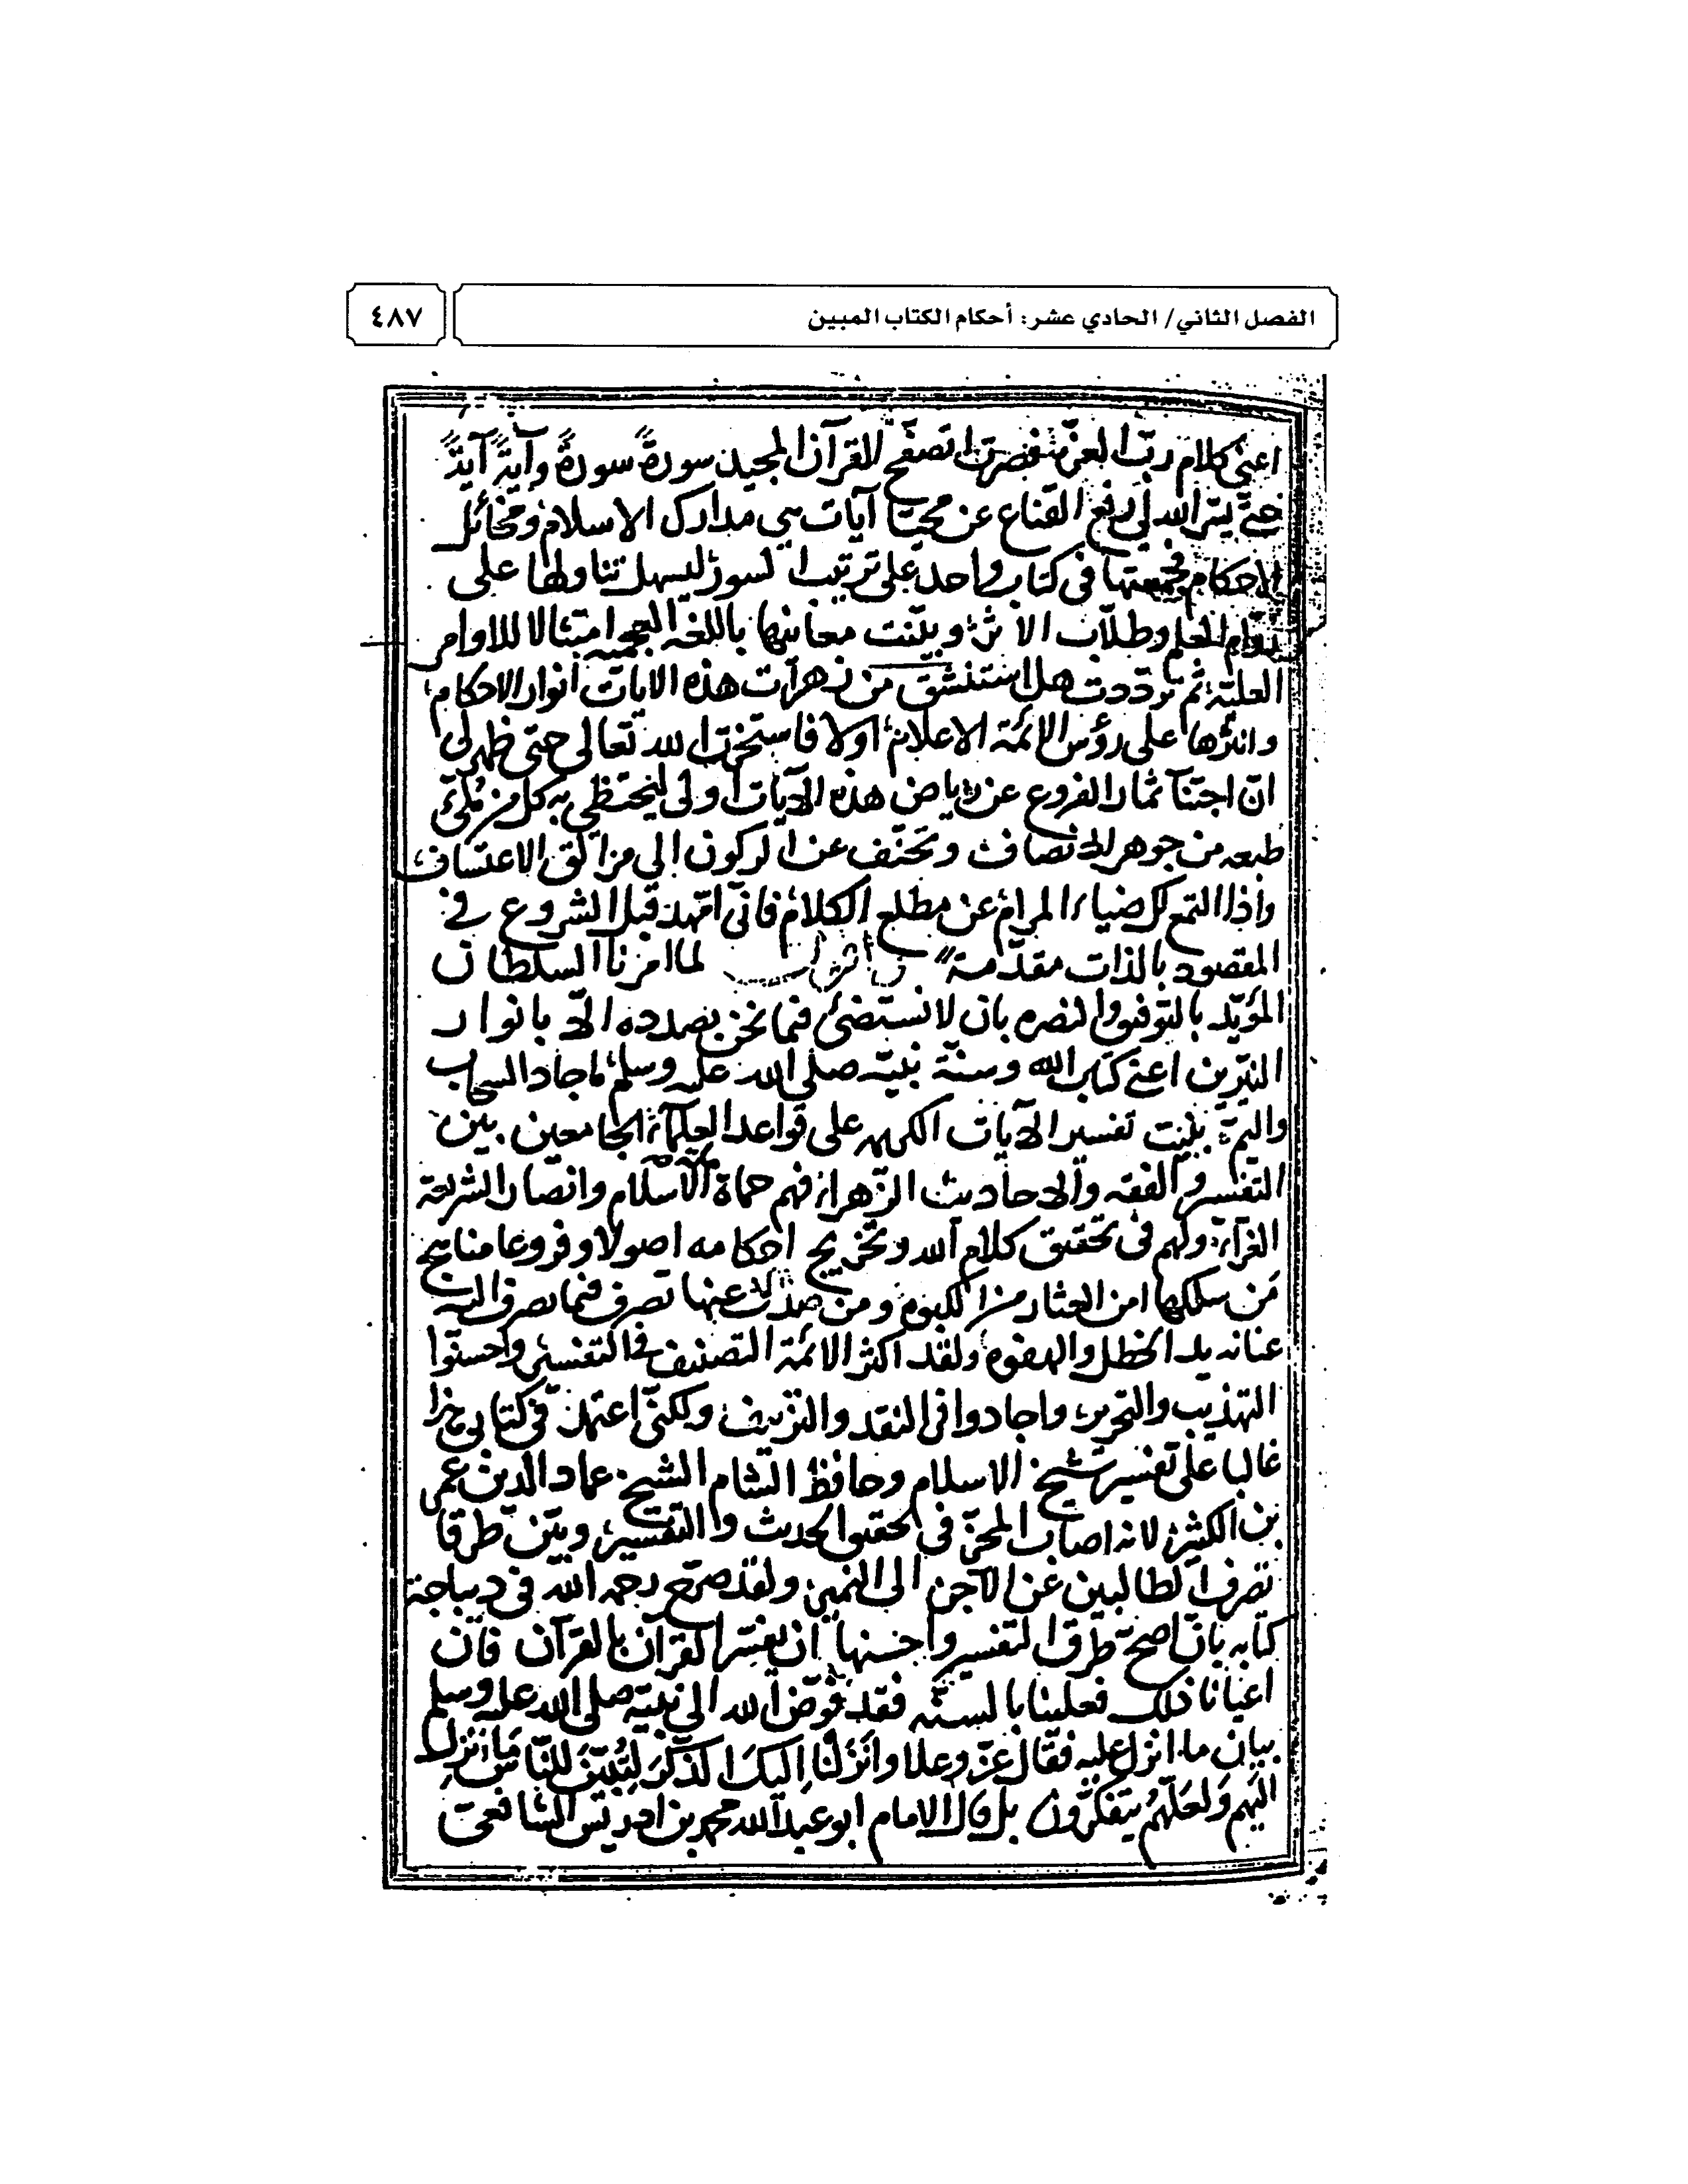 الفصل الثاني/ الحادي عشر: أحكام الكتاب المبين
٤٨٧
اعني كلام رب العزة فصرت اتصفح القرآن المجيد سورة سورة وآية آية
حتى يسر الله لي رفع القناع عن محيا آيات هي مدارك الاسلام ومخائل
الاحكام فجمعتها في كتاب واحد على ترتيب السور ليسهل تناولها على
روام العلم وطلاب الاثر وبينت معانيها باللغة العجمية امتثالا للاوامر
العلية ثم ترددت هل استنشق من زهرات هذه الايات أنوار الاحكام
وانثرها على رؤس الائمة الاعلام اولا فاستخرت الله تعالى حتى ظهر لي
ان اجتناء ثمار الفروع عن رياض هذه الآيات اولى ليحتظي به كل من
طبعه من جوهر الانصاف وتحنف عن الركون الى مزالق الاعتساف
واذا التمع لك ضياء المرام عن مطلع الكلام فاني امهد قبل الشروع في
المقصود بالذات مقدمة لما امرنا السلطان
المؤيد بالتوفيق والنصره بان لا نستضئ فيما نحن بصدده الا بانوار
النيرين اعني كتاب الله وسنة نبيه صلى الله عليه وسلم ما جاد السحاب
واليم بنيت تفسير الآيات الكريمه على قواعد العلماء الجامعين بين
التفسير والفقه والاحاديث الزهراء فهم حماة الاسلام وانصار الشريعة
الغراء ولهم في تحقيق كلام الله وتخريج احكامه اصولا وفروعا مناهج
من سلكها امن العثار من الكبوه ومن صدف عنها تصرف فيما يصرف اليه
عنانه يد الخطل والهفوه ولقد اكثر الائمة التصنيف في التفسير واحسنوا
التهذيب والتحرير واجادوا في النقد والتزييف ولكني اعتمد في كتابي هذا
غالبا على تفسير شيخ الاسلام وحافظ الشام الشيخ عماد الدين عمر
بن الكثير لانه اصاب المحز في تحقيق الحديث والتفسير وبين طرقا
تصرف الطالبين عن الآجن الى النمير ولقد صرح رحمه الله في ديباجة
كتابه بان اصح طرق التفسير واحسنها ان يفسر القرآن بالقرآن فان
اعيانا ذلك فعلينا بالسنة فقد فوض الله الى نبيه صلى الله عليه وسلم
بيان ما انزل عليه فقال عز وعلا وَانْزَلْنَا اِلَيكَ الذِّكْرَ لِتُبَيِّنَ للنَّاسِ مَا نُزِّلَ
اليهم وَلَعَلَّهُمْ يَتَفَكَّرُونَ بل قال الامام ابو عبد الله محمد بن ادريس الشافعي